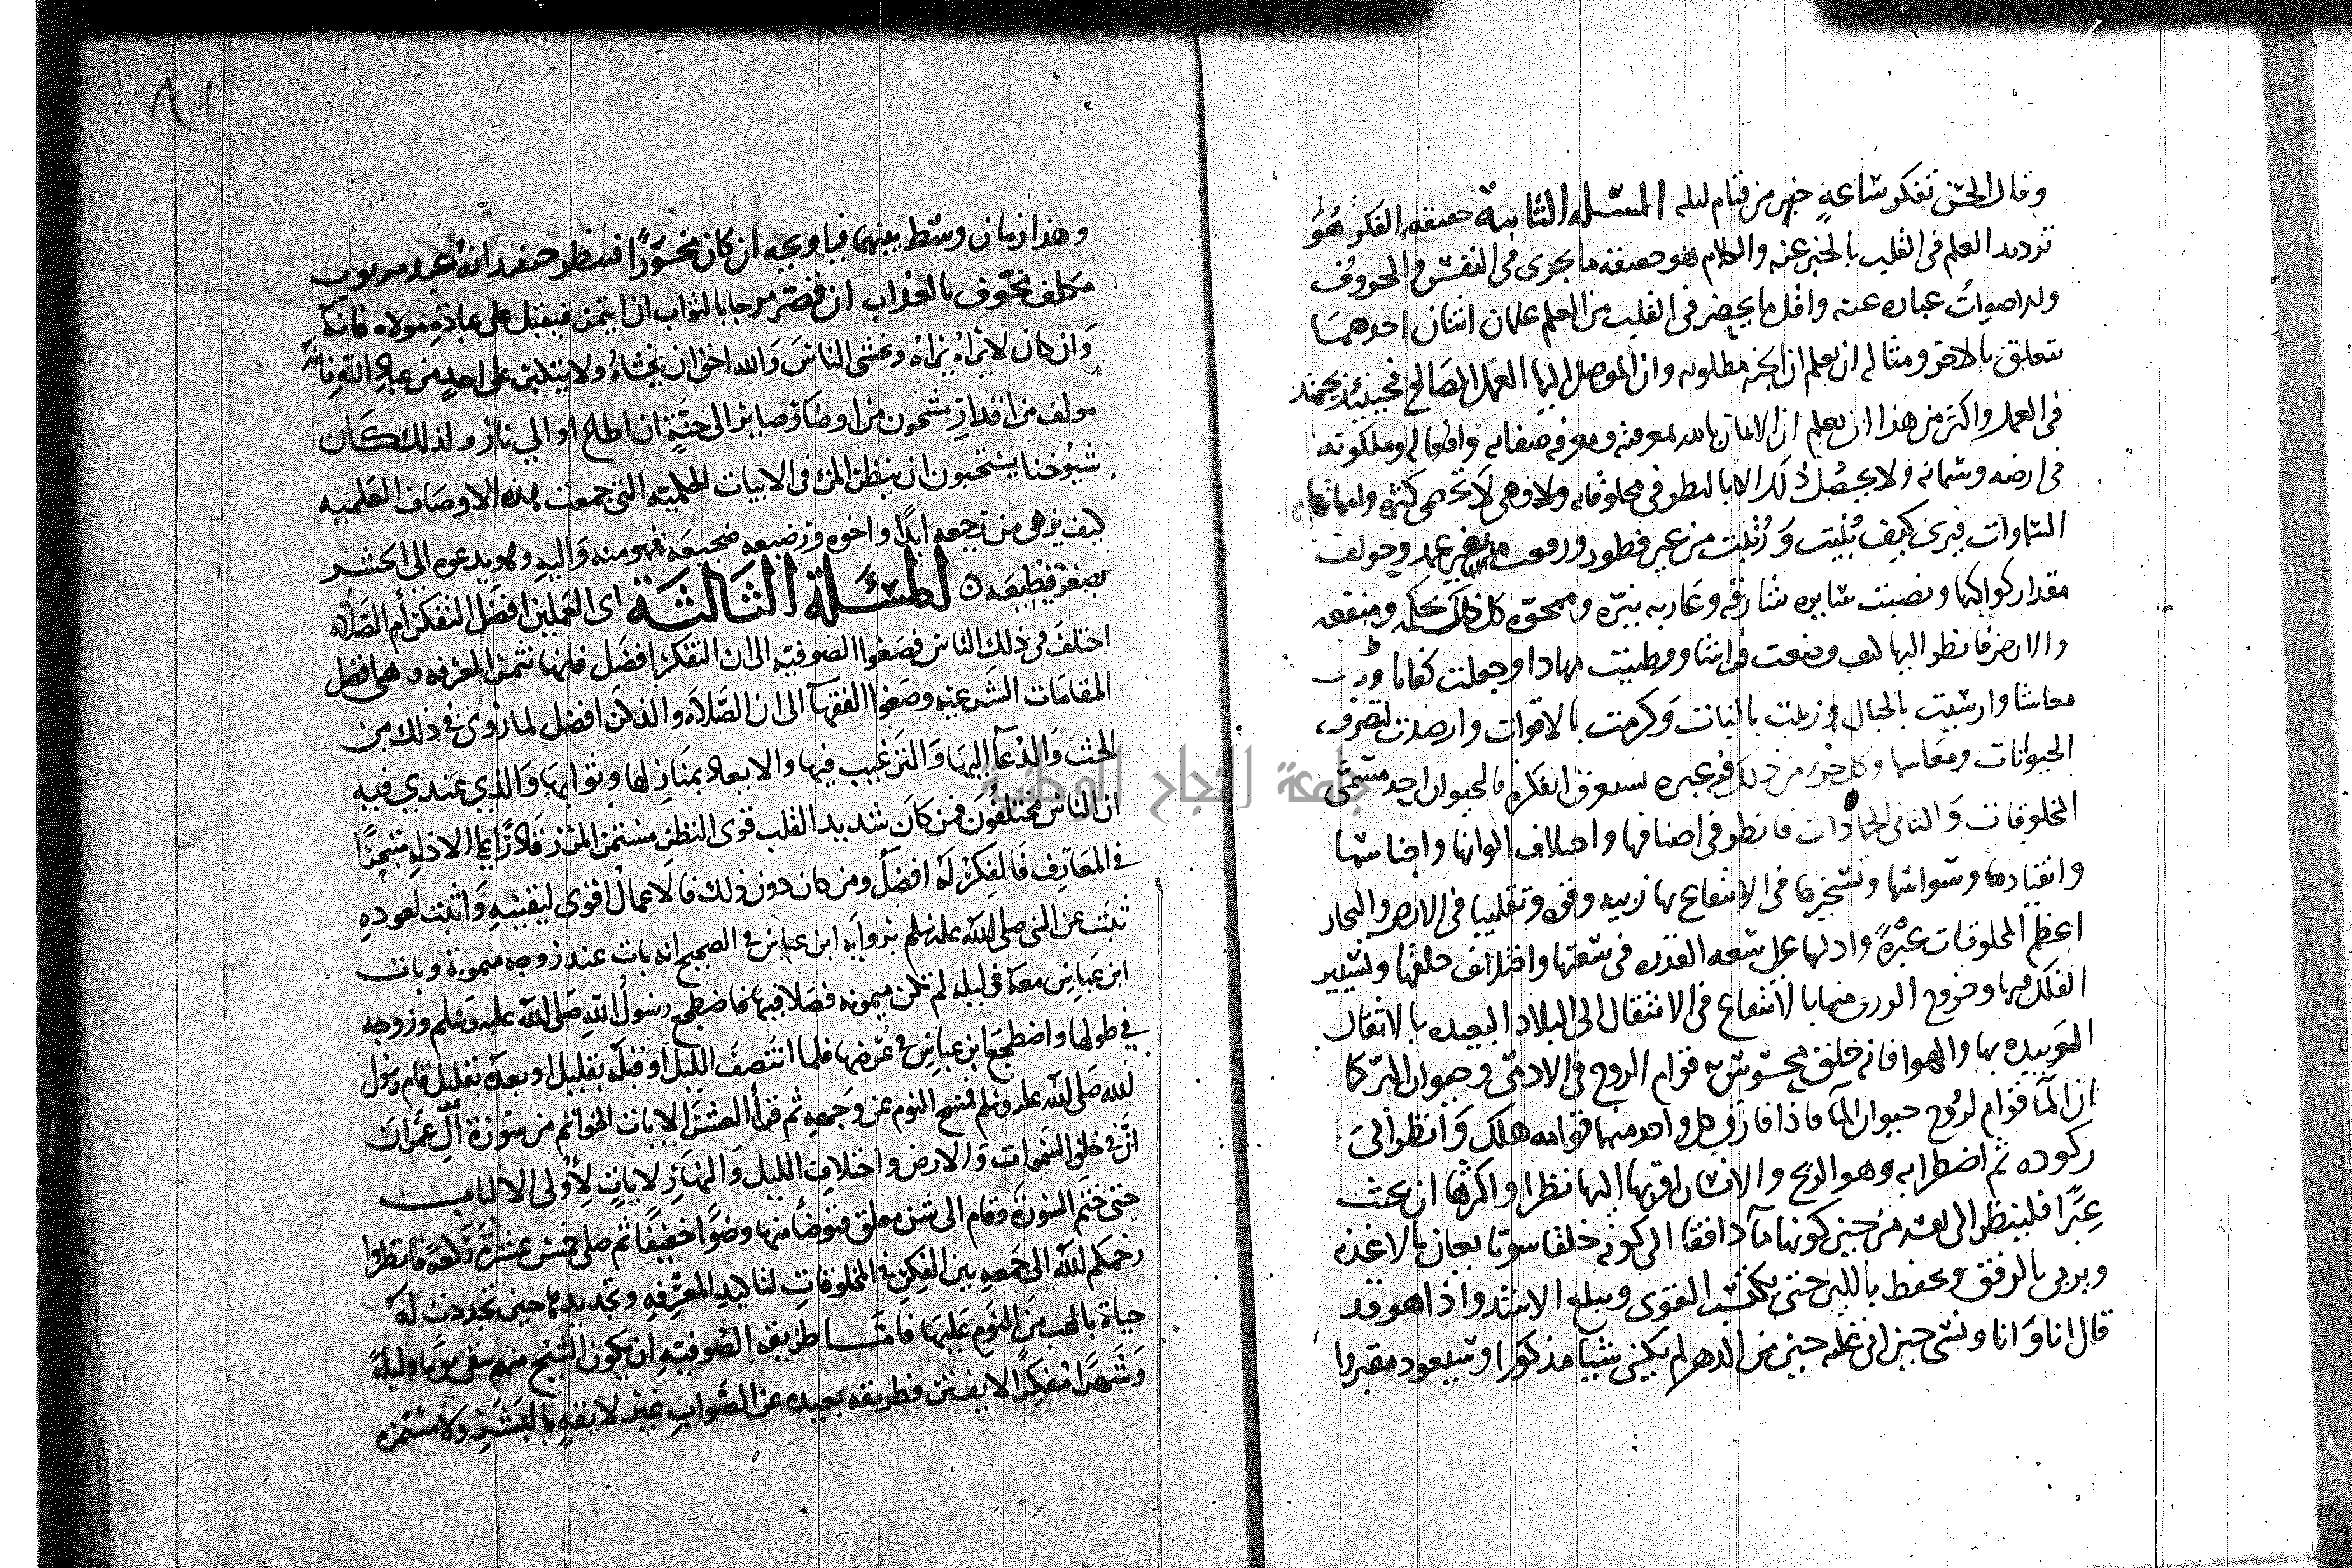 وقال الحسن تفكر ساعة خير من قيام ليله المسله الثانية حقيقه الفكر هو
ترديد العلم في القلب بالخبر عنه والكلام هو حقيقه ما يجري في النفس والحروف
والاصوات عباره عنه واقل ما يحضر في القلب من العلم علمان اثنان احدهما
يتعلق بالاخر ومثاله ان يعلم ان الجنه مطلوبه وان الموصل اليها العمل الصالح فحينئذ يجتهد
في العمل واكثر من هذا ان يعلم ان الايمان بالله لمعرفته ومعرفه صفاته وافعاله وملكوته
في ارضه وسمائه ولا يحصل ذلك الا بالنظر في مخلوقاته وهي لا تحصى كثره وامهاتها
السماوات فيرى كيف بنيت وزينت من غير فطور ورفعت بغير عمد وخولف
مقدار كواكبها ونصبت سايره شارقه وغاربه نيره وممحوه كل ذلك بحكمه ومنفعه
والارض فانظر اليها كيف وضعت فراشا ووطيت مهادا وجعلت كفاتا
معاشا وارسيت بالجبال وزينت بالنبات وكرمت بالاقوات وارصدت لتصرف
الحيوانات ومعاشها وكل جزء من ذلك فيه عبره تستغرق الفكره والحيوان احد
المخلوقات والثاني الجمادات فانظر في اصنافها واختلاف الوانها واجناسها
وانقيادها وتسخيرها في الانتفاع بها زينه وقوه وتقلبا في الارض والبحار
اعظم المخلوقات عبرة وادلها على سعه القدره في سعتها واختلاف خلقها وتسيير
الفلك فيها وخروج الرزق منها بالانتفاع في الانتقال الى البلاد البعيده بالاثقال
بها والهوا فانه خلق محسوس به قوام الروح في الادمي وحيوان البر كما
ان الما قوام لروح حيوان الما فاذا فارق كل واحد منهما قوامه هلك وانظر الى
ركوده ثم اضطرابه وهو الريح والانسان اقربها اليها نظرا واكثرها ان بحث
عبرا فلينظر الى نفسه من حين كونها مآ دافقا الى كونه خلقا سويا يعان بالاغذيه
ويربى بالرفق ويحفظ باللبن حتى يكتسب القوى ويبلغ الاشد واذا هو قد
قال انا وانا ونسي حين اتى عليه حين من الدهر لم يكن شيا مذكورا وسيعود مقبورا
٨١
وهذا زمان وسط بينهما فيا ويحه ان كان محسورا فينظر حينئذ انه عبد مربوب
مكلف مخوف بالعذاب ان قصر مرجا بالثواب ان ايتمر فيقبل على عبادة مولاه فانه
وان كان لا يراه يراه ويخشى الناس والله احق ان يخشاه ولا يتكبر على احد من عباد الله فانه
مولف من اقذار مشحون من اوضار صاير الى جنة ان اطاع او الى نار ولذلك كان
شيوخنا يستحبون ان ينظر المرء في الابيات الحكميه التي جمعت هذه الاوصاف العلميه
كيف يزهى من رجيعه ابدا واخوه ورضيعه ضجيعه فهو منه واليه وهو يدعوه الى الحش
بصغر فيطيعه المسئلة الثالثة اى العملين افضل التفكر أم الصلاة
اختلف في ذلك الناس فصغوا الصوفيه الى ان التفكر افضل فانها تثمر المعرفه وهي افضل
المقامات الشرعيه وصغوا الفقهآ الى ان الصلاه والذكر افضل لما روي في ذلك من
الحث والدعآ اليها والترغيب فيها والابعاد بمنازلها وثوابها والذي عندي فيه
ان الناس مختلفون فمن كان شديد القلب قوى النظر مستمر المرر قادرا على الادله متبحرا
في المعارف فالفكر له افضل ومن كان دون ذلك فالاعمال اقوى ليقينه واثبت لعوده
ثبت عن النبي صلى الله عليه وسلم برواية ابن عباس في الصحيح انه بات عند زوجه ميمونة وبات
ابن عباس معه في ليله لم تكن ميمونه فصلا فيها فاضطجع رسول الله صلى الله عليه وسلم وزوجه
في طولها واضطجع ابن عباس في عرضها فلما انتصف الليل او قبله بقليل او بعده بقليل قام رسول
الله صلى الله عليه وسلم فمسح النوم عن وجهه ثم قرأ العشر الايات الخواتم من سورة آل عمران
ان في خلق السموات والارض واختلاف الليل والنهار لايات لأولى الالباب
حتى ختم السورة وقام الى شن معلق فتوضأ منها وضوا خفيفا ثم صلى خمس عشرة ركعة فانظروا
رحمكم الله الى جمعه بين الفكر في المخلوقات لتاكيد المعرفه وتجديدها حين تجددت له
حياة بالهب من النوم عليها فامـا طريقه الصوفيه ان يكون الشيخ منهم يبقى يوما وليلة
وشهرا مفكرا لا يفتر فطريقه بعيده عن الصواب غير لايقه بالبشر ولا مستمره
جامعة النجاح الوطنية